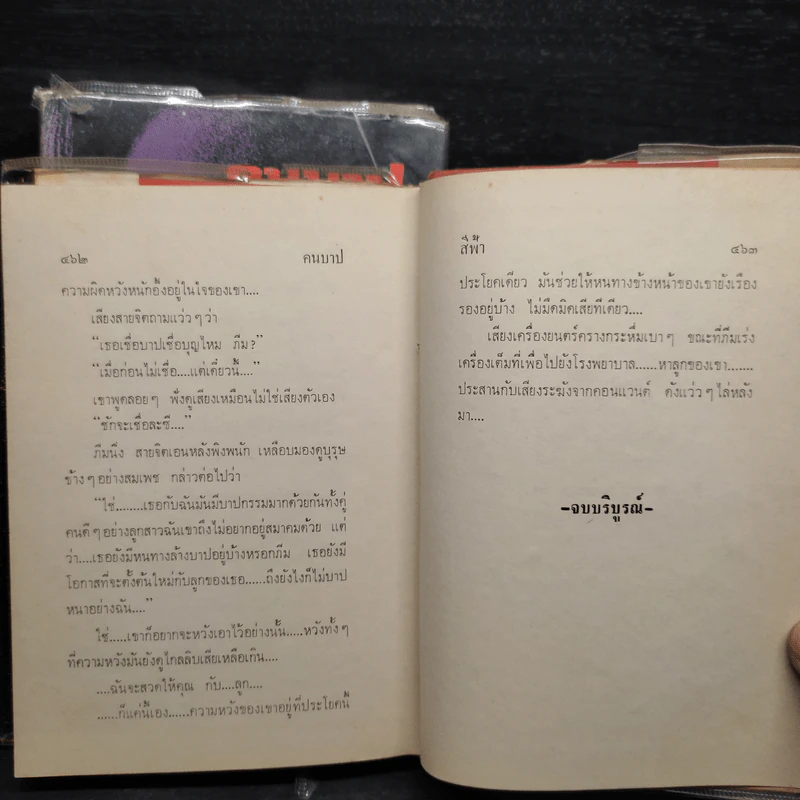 คนบาป
๔๖๒
คนบาป
ความผิดหวังหนักอึ้งอยู่ในใจของเขา....
เสียงสายจิตถามแว่วๆว่า
“เธอเชื่อบาปเชื่อบุญไหม ภีม?”
“เมื่อก่อนไม่เชื่อ....แต่เดี๋ยวนี้....”
เขาพูดลอยๆ ฟังดูเสียงเหมือนไม่ใช่เสียงตัวเอง
“ชักจะเชื่อละซี....”
ภีมนิ่ง สายจิตเอนหลังพิงพนัก เหลือบมองดูบุรุษ
ข้างๆอย่างสมเพช กล่าวต่อไปว่า
“ใช่........เธอกับฉันมันมีบาปกรรมมากด้วยกันทั้งคู่
คนดีๆอย่างลูกสาวฉันเขาถึงไม่อยากอยู่สมาคมด้วย แต่
ว่า....เธอยังมีหนทางล้างบาปอยู่บ้างหรอกภีม เธอยังมี
โอกาสที่จะตั้งต้นใหม่กับลูกของเธอ......ถึงยังไงก็ไม่บาป
หนาอย่างฉัน....”
ใช่.....เขาก็อยากจะหวังเอาไว้อย่างนั้น.....หวังทั้งๆ
ที่ความหวังมันยังดูไกลลิบเสียเหลือเกิน....
....ฉันจะสวดให้คุณ กับ....ลูก....
......ก็แค่นี้เอง......ความหวังของเขาอยู่ที่ประโยคนี้
สีฟ้า
๔๖๓
ประโยคเดียว มันช่วยให้หนทางข้างหน้าของเขายังเรือง
รองอยู่บ้าง ไม่มืดมิดเสียทีเดียว....
เสียงเครื่องยนตร์ครางกระหึ่มเบาๆ ขณะที่ภีมเร่ง
เครื่องเต็มที่เพื่อไปยังโรงพยาบาล......หาลูกของเขา.......
ประสานกับเสียงระฆังจากคอนแวนต์ ดังแว่วๆไล่หลัง
มา....
–จบบริบูรณ์–